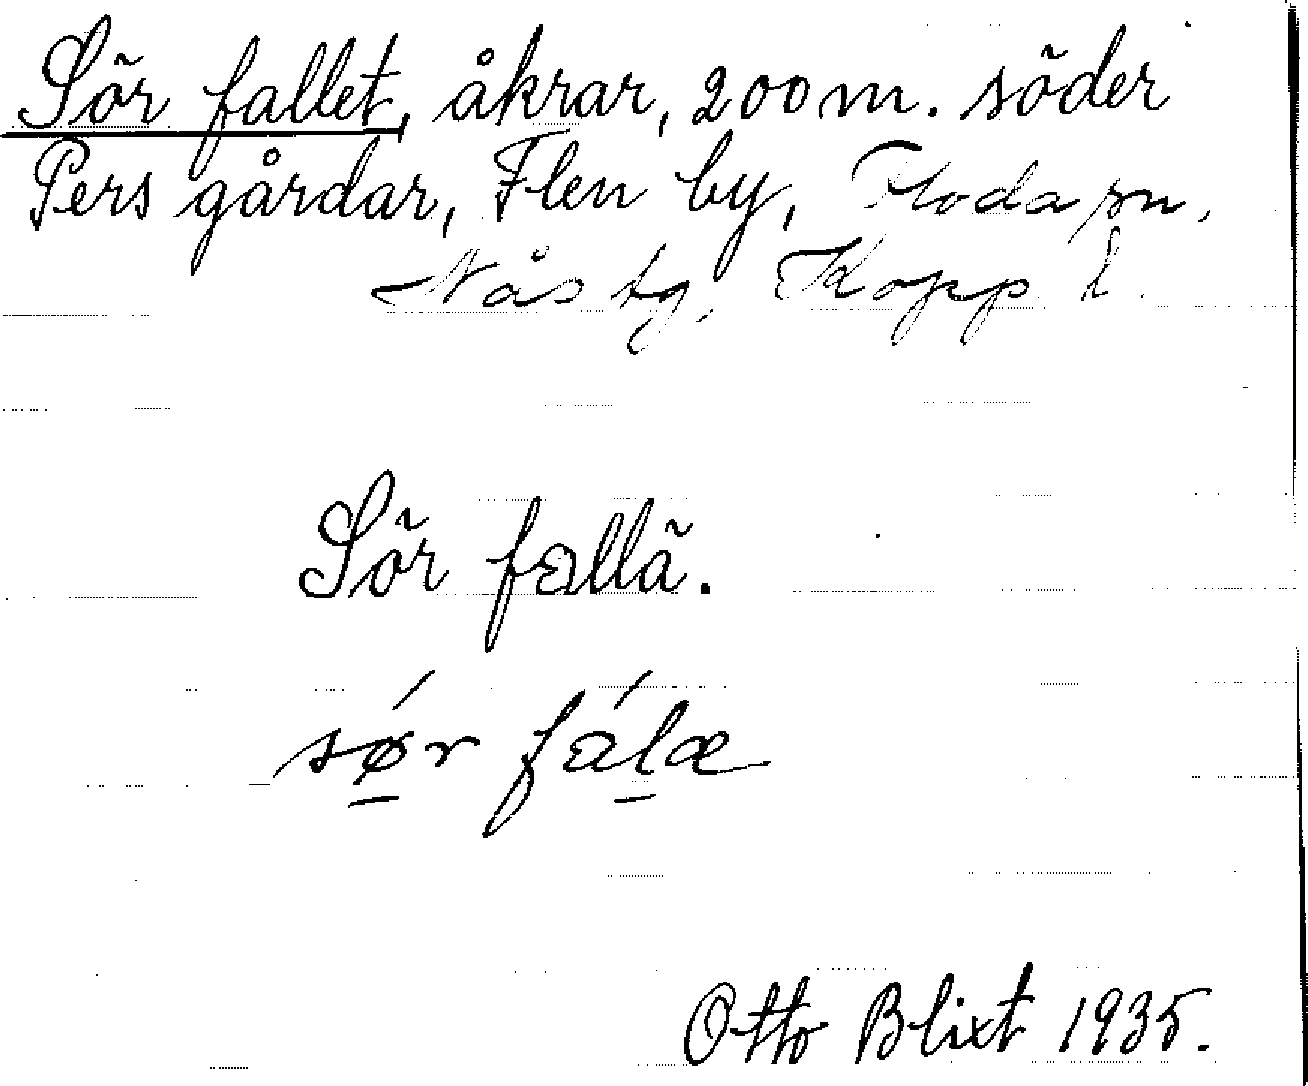 Sör fallet, åkrar, 200 m. söder
Pers gårdar, Flen by, Floda sn,
Nås tg, Kopp l.
Sör fallä.
sǿ̱r fáḻæ
Otto Blixt 1935.